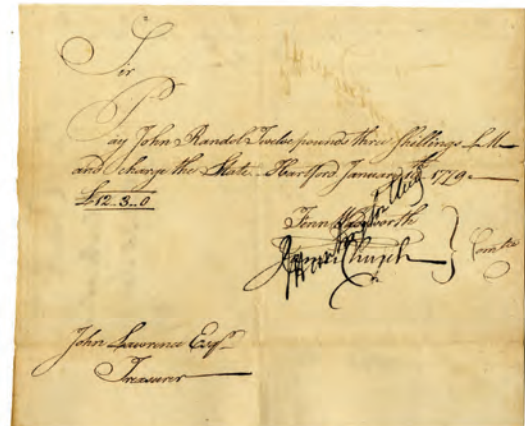 Sir
Pay John Randol Twelve pounds three Shillings L M
and charge the State. Hartford January 1779.
£12..3..0
Fenn Wadsworth
James Church } Com.tee
John Lawrence Esqr.
Treasurer